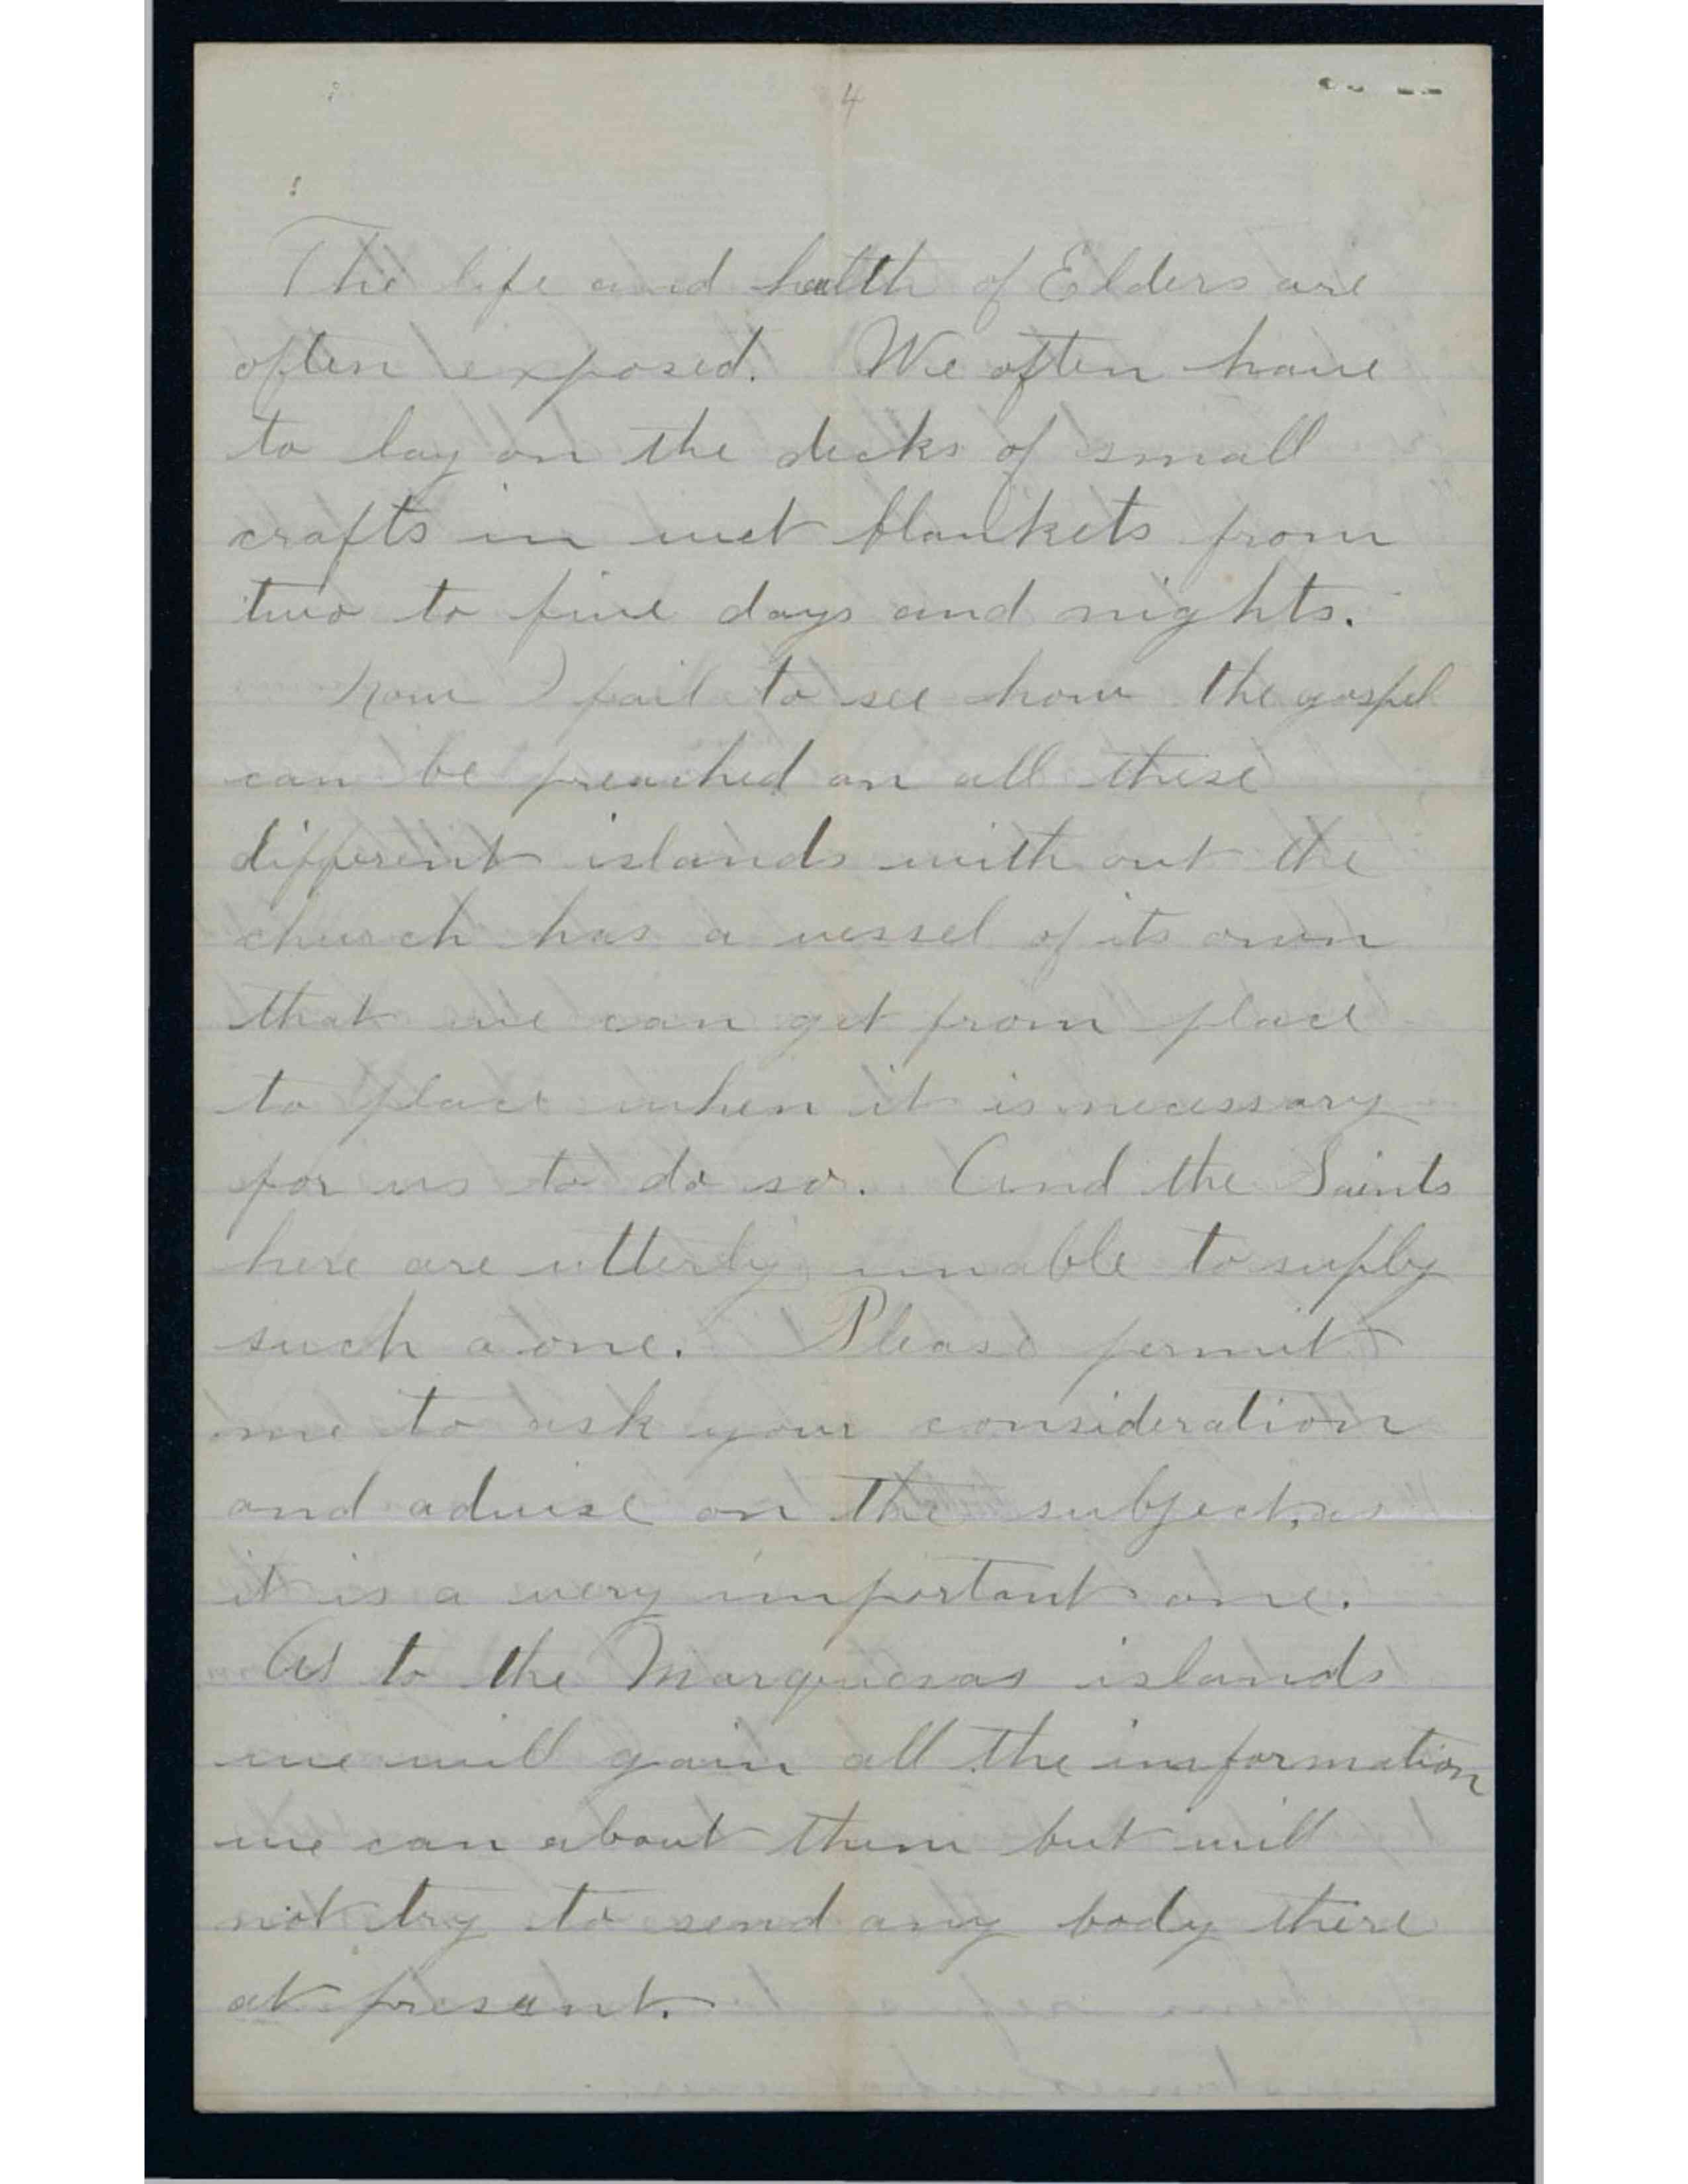 4
The life and health of Elders are
often exposed. We often have
to lay on the decks of small
crafts in wet blankets from
two to five days and nights.
Now I fail to see how the gospel
can be preached on all these
different islands with out the
church has a vessel of its own
that we can get from place
to place when it is necessary
for us to do so. And the Saints
here are utterly unable to suply
such a one. Please permit
me to ask your consideration
and advise on the subject, as
it is a very important one.
As to the Marquesas islands
we will gain all the information
we can about them but will
not try to send any body there
at present.